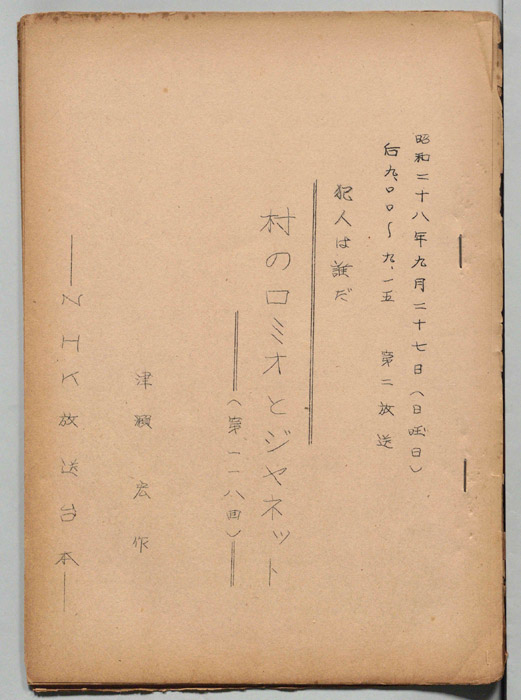 昭和二十八年九月二十七日（日曜日）
后九、〇〇〜九、一五　第二放送
犯人は誰だ
村のロミオとジャネット
（第一一八回）
津瀬　宏　作
―NHK放送台本―